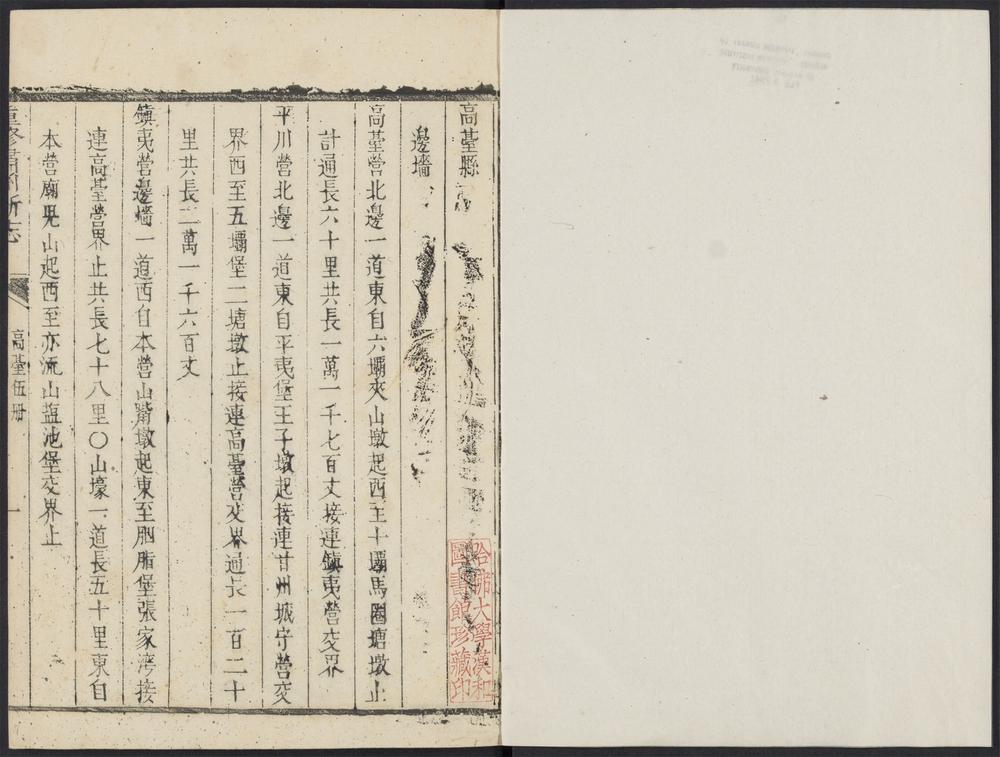 高臺縣
邊墻
高臺營北邊一道東自六壩夾山墩起西至十壩馬圈塘墩止
計通長六十里共長一萬一千七百丈接連鎮夷營交界
平川營北邊一道東自平夷堡王子墩起接連甘州城守營交
界西至五壩堡二塘墩止接連高臺營交界通長一百二十
里共長二萬一千六百丈
鎮夷營邊墻一道西自本營山嘴墩起東至胭脂堡張家灣接
連高臺營界止共長七十八里〇山壕一道長五十里東自
本營廟兒山起西至亦流山鹽池堡交界止
重修肅州新志
高臺伍冊
一
哈佛大學漢和
圖書館珍藏印